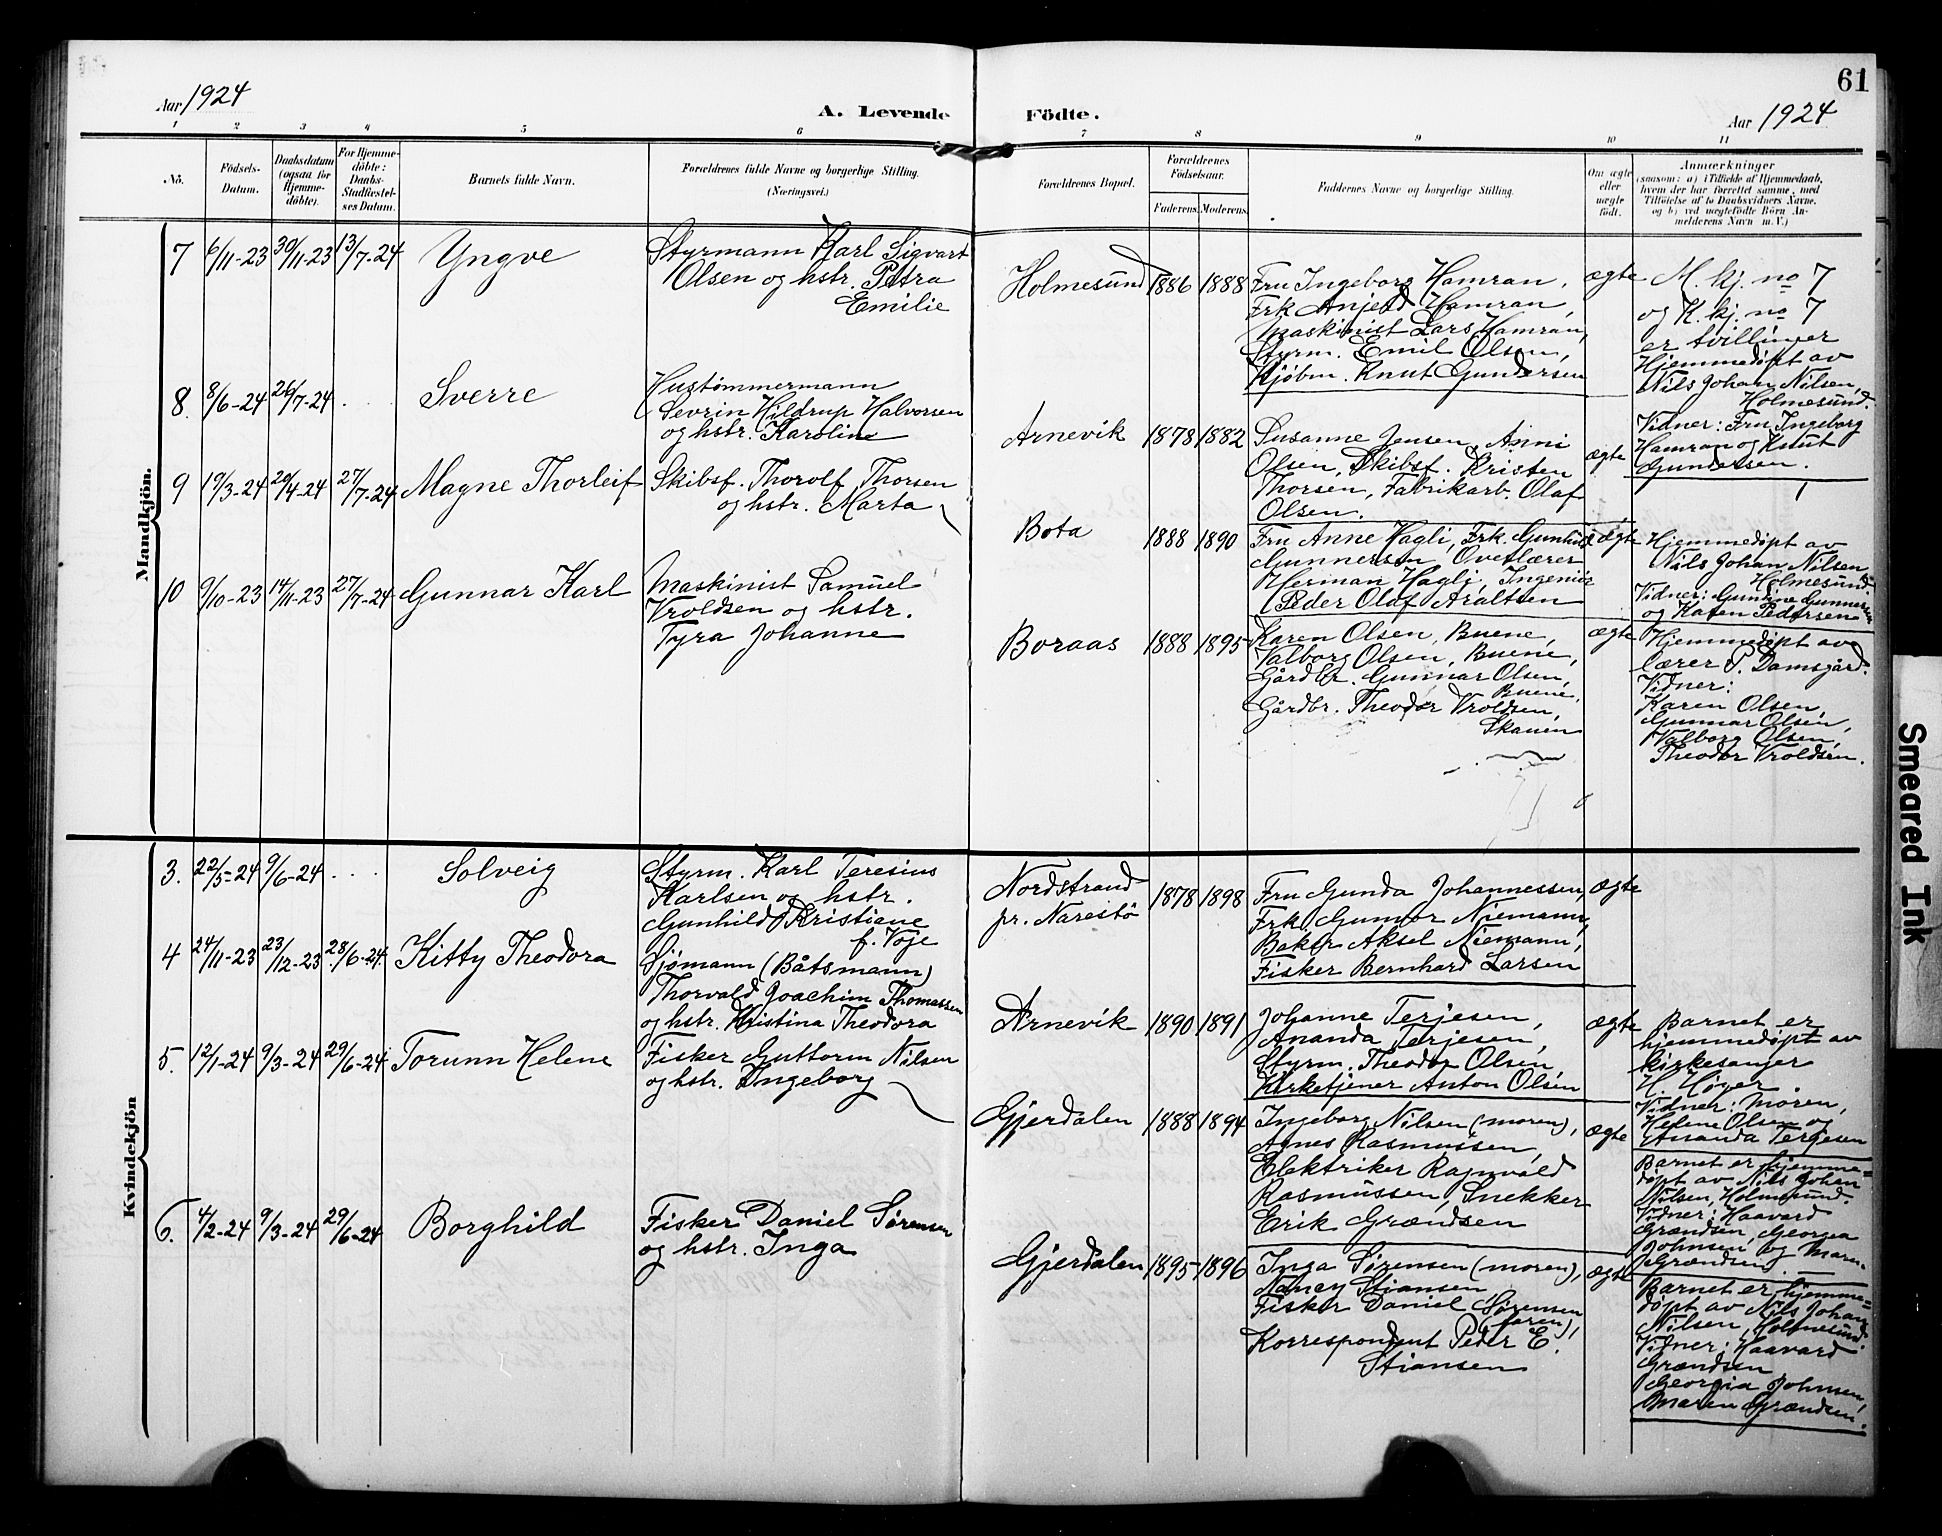 61
Aar 1924
A. Levende
Födte.
Aar 1924
1
2
3
4
5
6
7
8
9
10
11
Nö.
Födsels-
Datum.
Daabsdatum
(ogsaa for
Hjemme-
döbte).
For Hjemme-
döbte:
Daabs-
Stadfæstel-
ses Datum.
Barnets fulde Navn.
Forældrenes fulde Navne og borgerlige Stilling.
(Næringsvei.)
Forældrenes Bopæl.
Forældrenes
Födselsaar.
Faderens.
Moderens.
Faddernes Navne og borgerlige Stilling.
Om ægte
eller
uægte
födt.
Anmærkninger
(saasom: a) i Tilfælde af Hjemmedaab,
hvem der har forrettet samme, med
Tilföielse af to Daabsvidners Navne,
og b) ved uægtefödte Börn An-
melderens Navn m. V.)
Mandkjön.
7
6/11-23
30/11-23
13/7-24
Yngve
Styrmann Karl Sigvart
Olsen og hstr. Petra
Emilie
Holmesund
1886
1888
Fru Ingeborg Hamran,
Frk Anjetd Hamran,
Maskinist Lars Hamran,
Styrm. Emil Olsen,
Kjøbm. Knut Gundersen
ægte
M. kj. no 7
og K. kj. no 7
er tvillinger
Hjemmedøpt av
Nils Johan Nilsen,
Holmesund.
Vidner: Fru Ingeborg
Hamran og Knut
Gundersen.
8.
8/6-24
26/7-24
. . .
Sverre
Hustømmermann
Sevrin Hildrup Halvorsen
og hstr. Karoline
Arnevik
1878
1882
Susanne Jensen, Anni
Olsen, Skibsf. Kristen
Thorsen, Fabrikarb. Olaf
Olsen.
ægte
9
19/3-24
20/4-24
27/7-24
Magne Thorleif
Skibsf. Thorolf Thorsen
og hstr. Marta
Bota
1888
1890
Fru Anne Hagli, Frk. Gunhild
Gunnersen Overlærer
Herman Hagli, Ingeniør
Peder Olaf Araltsen
ægte
Hjemmedøpt av
Nils Johan Nilsen
Holmesund.
Vidner: Gundine Gunnersen
og Karen Pedersen
10
9/10-23
14/11-23
27/7-24
Gunnar Karl
Maskinist Samuel
Vroldsen og hstr.
Tyra Johanne
Boraas
1888
1895
Karen Olsen, Buene,
Valborg Olsen, Buene,
Gårdbr. Gunnar Olsen,
Buene,
Gårdbr. Theodor Vroldsen,
Skauen
ægte
Hjemmedøpt av
lærer P. Damsgård.
Vidner:
Karen Olsen,
Gunnar Olsen,
Valborg Olsen,
Theodor Vroldsen.
Kvindekjön
3.
22/5-24
9/6-24
. . .
Solveig
Styrm. Karl Teresius
Karlsen og hstr.
Gunhild Kristiane
f. Voje
Nordstrand
pr. Narestö
1878
1898
Fru Gunda Johannessen,
Frk. Gunvor Niemann,
Baker Aksel Niemann,
Fisker Bernhard Larsen
ægte
4
24/11-23
23/12-23
28/6-24
Kitty Theodora
Sjømann (Båtsmann)
Thorvald Joachim Thomassen
og hstr. Kristina Theodora
Arnevik
1890
1891
Johanne Terjesen,
Ananda Terjesen,
Styrm. Theodor Olsen
Kirketjener Anton Olsen
ægte
Barnet er
hjemmedøpt av
kirkesanger
H. Høyer.
Vidner: Moren,
Helene Olsen og
Ananda Terjesen
5.
12/1-24
9/3-24
29/6-24
Torunn Helene
Fisker Guttorm Nilsen
og hstr. Ingeborg
Gjerdalen
1888
1894
Ingeborg Nilsen (moren),
Agnes Rasmussen,
Elektriker Ragnvald
Rasmussen, Snekker
Erik Grændsen
ægte
Barnet er hjemme-
døpt av Nils Johan
Nilsen, Holmesund.
Vidner: Haavard
Grændsen, Georgia
Johnsen og Maren
Grændsen.
6.
4/2-24
9/3-24
29/6-24
Borghild
Fisker Daniel Sørensen
og hstr. Inga
Gjerdalen
1895
1896
Inga Sørensen (moren),
Nancy Stiansen
Fisker Daniel Sørensen
(faren),
Korrespondent Peder E.
Stiansen
ægte
Barnet er hjemme-
døpt av Nils Johan
Nilsen, Holmesund.
Vidner: Haavard
Grændsen
Georgia Johnsen,
Maren Grændsen.
Smeared Ink